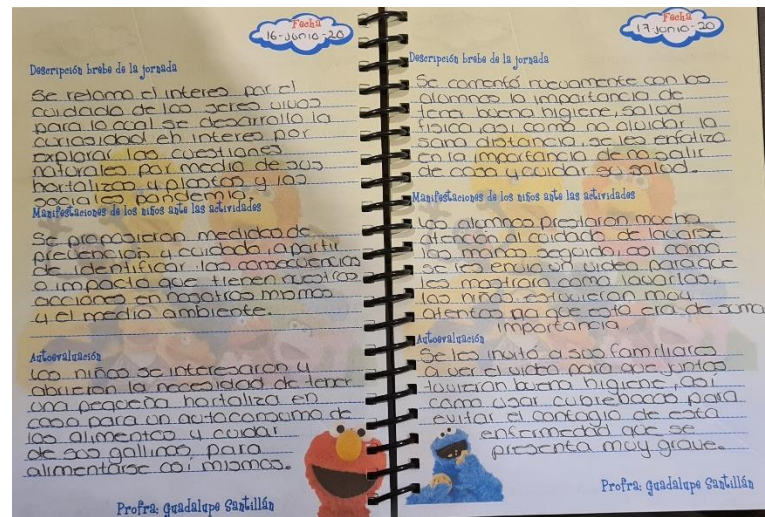 Fecha
16-Junio-20
Descripción brebe de la jornada
Se retomo el interes por el
cuidado de los seres vivos
para lo cual se desarrollo la
curiosidad en interes por
explorar las cuestiones
naturales por medio de sus
hortalizas y plantas, y las
sociales pandemia.
Manifestaciones de los niños ante las actividades
Se propusieron medidas de
prevención y cuidado apartir
de identificar las consecuencias
o impacto que tienen nuestras
acciones en nosotros mismos
y el medio ambiente.
Autoevaluación
Los niños se interesaron y
abrieron la necesidad de tener
una pequeña hortaliza en
casa para un autoconsumo de
los alimentos y cuidar
de sus gallinas, para
alimentarse asi mismos.
Profra: Guadalupe Santillán
Fecha
17-Junio-20
Descripción brebe de la jornada
Se comentó nuevamente con los
alumnos la importancia de
tener buena higiene, salud
fisica, asi como no olvidar la
sana distancia, se les enfatizo
en la importancia de no salir
de casa y cuidar su salud.
Manifestaciones de los niños ante las actividades
Los alumnos prestaron mucha
atención al cuidado de lavarse
las manos seguido, asi como
se les envio un video para que
les mostrara como lavarlas,
los niños estuvieron muy
atentos ya que esto era de suma
importancia.
Autoevaluación
Se les invitó a sus familiares
a ver el video para que juntos
tuvieran buena higiene, asi
como usar cubrebocas para
evitar el contagio de esta
enfermedad que se
presenta muy grave.
Profra: Guadalupe Santillán